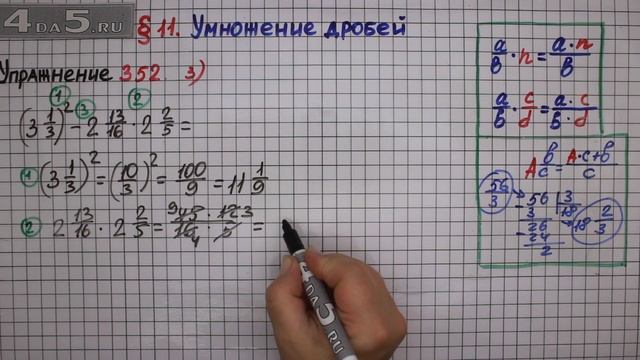 4ДА5.RU § 11. Умножение дробей
Упражнение 352 з)
① ③ ②
(3 1/3)² - 2 13/16 · 2 2/5 =
① (3 1/3)² = (10/3)² = 100/9 = 11 1/9
② 2 13/16 · 2 2/5 = 9 45 · 12 3 / 16 4 · 5 =
a/b · n = a·n/b
a/b · c/d = a·c/b·d
A b/c = A·c+b/c
56/3
56 | 3
- 3 | 18
26
- 24
2
18 2/3
4ДА5.RU